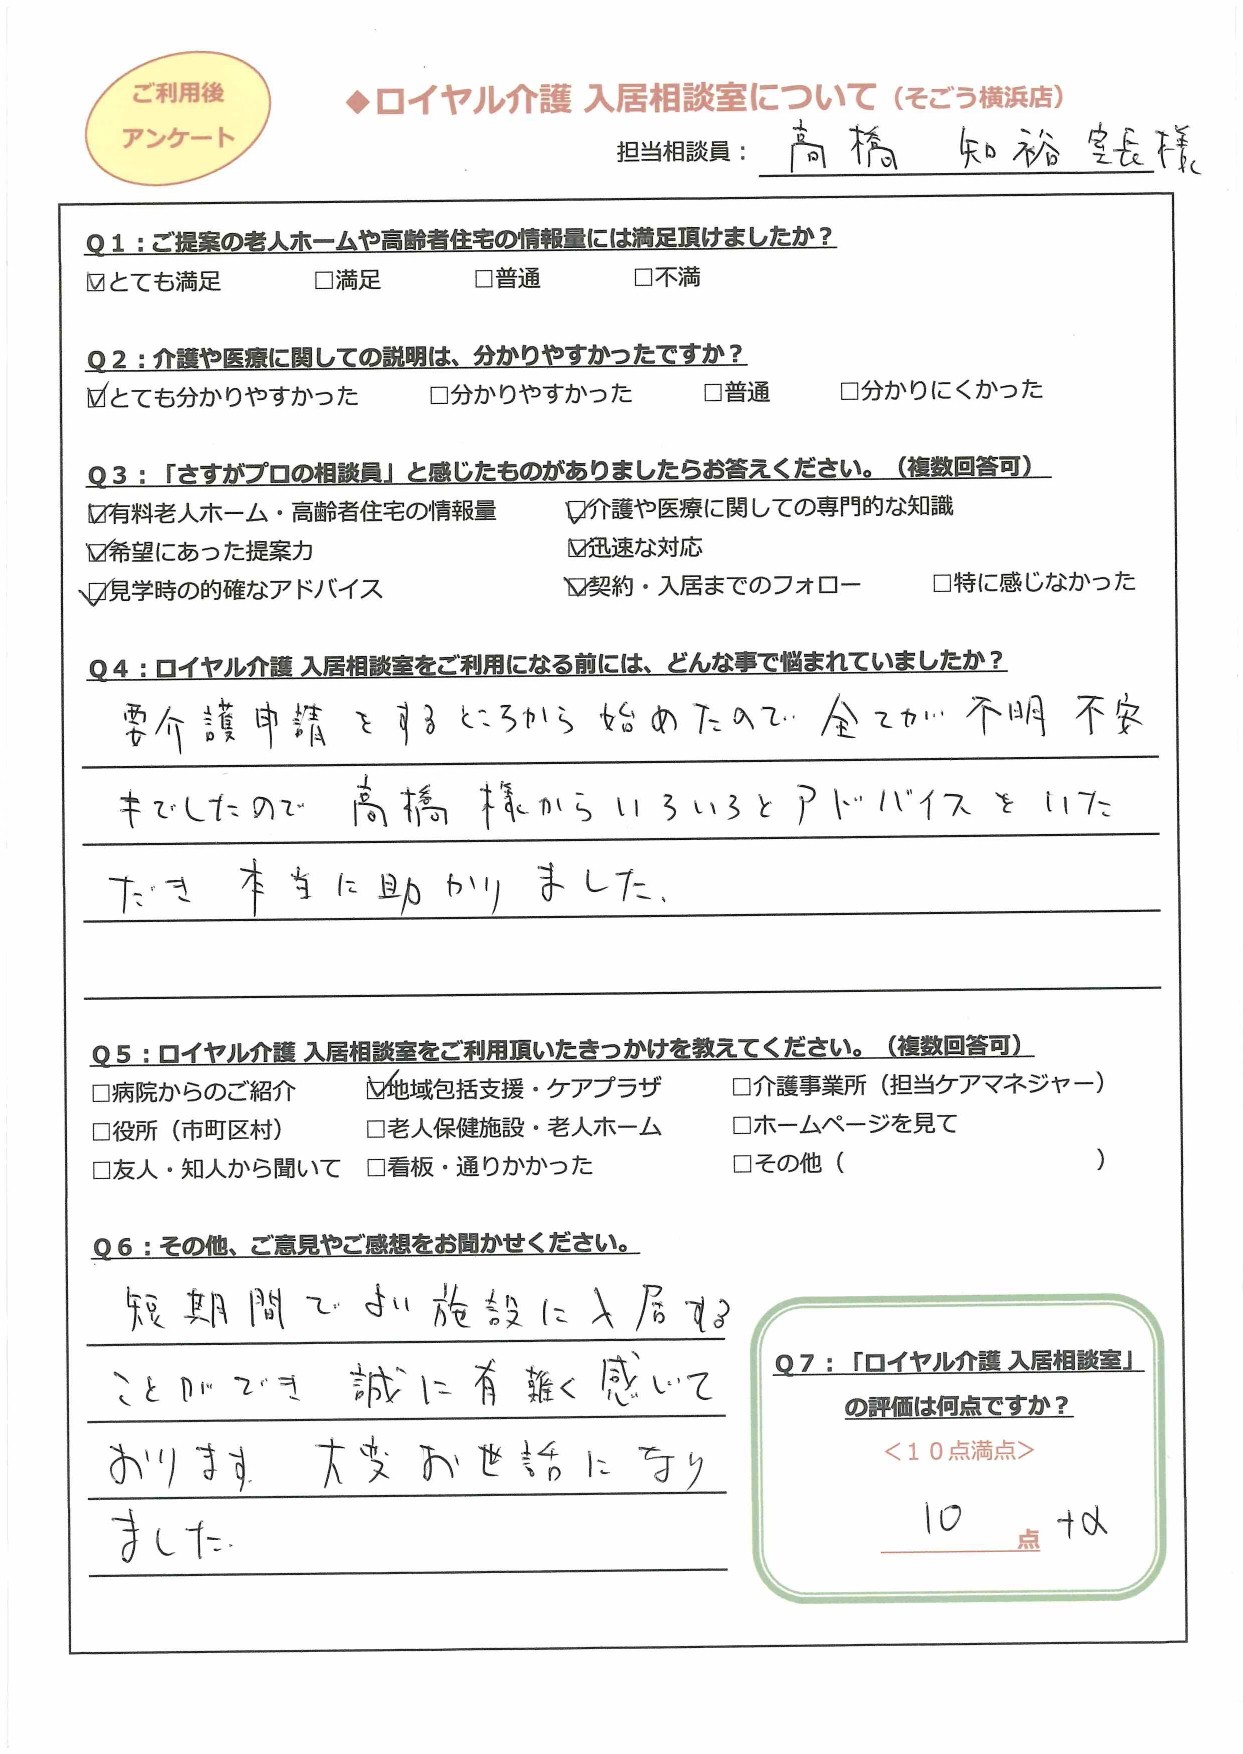 ご利用後
アンケート
◆ロイヤル介護 入居相談室について（そごう横浜店）
担当相談員： 高橋 知裕 室長様
Q1：ご提案の老人ホームや高齢者住宅の情報量には満足頂けましたか？
☑とても満足 □満足 □普通 □不満
Q2：介護や医療に関しての説明は、分かりやすかったですか？
☑とても分かりやすかった □分かりやすかった □普通 □分かりにくかった
Q3：「さすがプロの相談員」と感じたものがありましたらお答えください。（複数回答可）
☑有料老人ホーム・高齢者住宅の情報量 ☑介護や医療に関しての専門的な知識
☑希望にあった提案力 ☑迅速な対応
☑見学時の的確なアドバイス ☑契約・入居までのフォロー □特に感じなかった
Q4：ロイヤル介護 入居相談室をご利用になる前には、どんな事で悩まれていましたか？
要介護申請をするところから始めたので 全てが 不明 不安
でしたので 高橋様からいろいろとアドバイスをいた
だき 本当に助かりました、
Q5：ロイヤル介護 入居相談室をご利用頂いたきっかけを教えてください。（複数回答可）
□病院からのご紹介 ☑地域包括支援・ケアプラザ □介護事業所（担当ケアマネジャー）
□役所（市町区村） □老人保健施設・老人ホーム □ホームページを見て
□友人・知人から聞いて □看板・通りかかった □その他（ ）
Q6：その他、ご意見やご感想をお聞かせください。
短期間でよい施設に入居する
ことができ 誠に有難く感じて
おります. 大変お世話になり
ました.
Q7：「ロイヤル介護 入居相談室」
の評価は何点ですか？
＜10点満点＞
10 点 +α